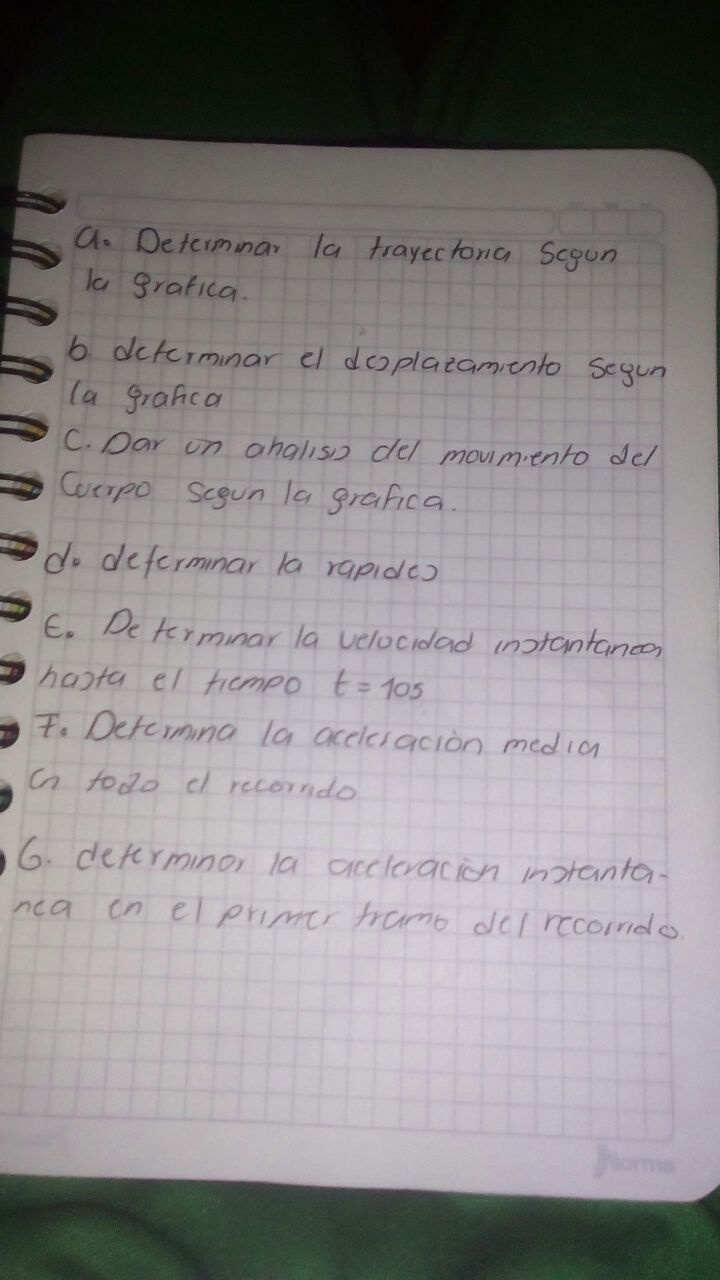 a. Determinar la trayectoria Segun
la grafica.
b. determinar el desplazamiento segun
la grafica
C. Dar un analisis del movimiento del
Cuerpo segun la grafica.
d. determinar la rapides
E. Determinar la velocidad instantanea
hasta el tiempo t = 10s
F. Determina la aceleración media
en todo el recorrido
G. determinar la aceleracion instanta-
nea en el primer tramo del recorrido.
Norma